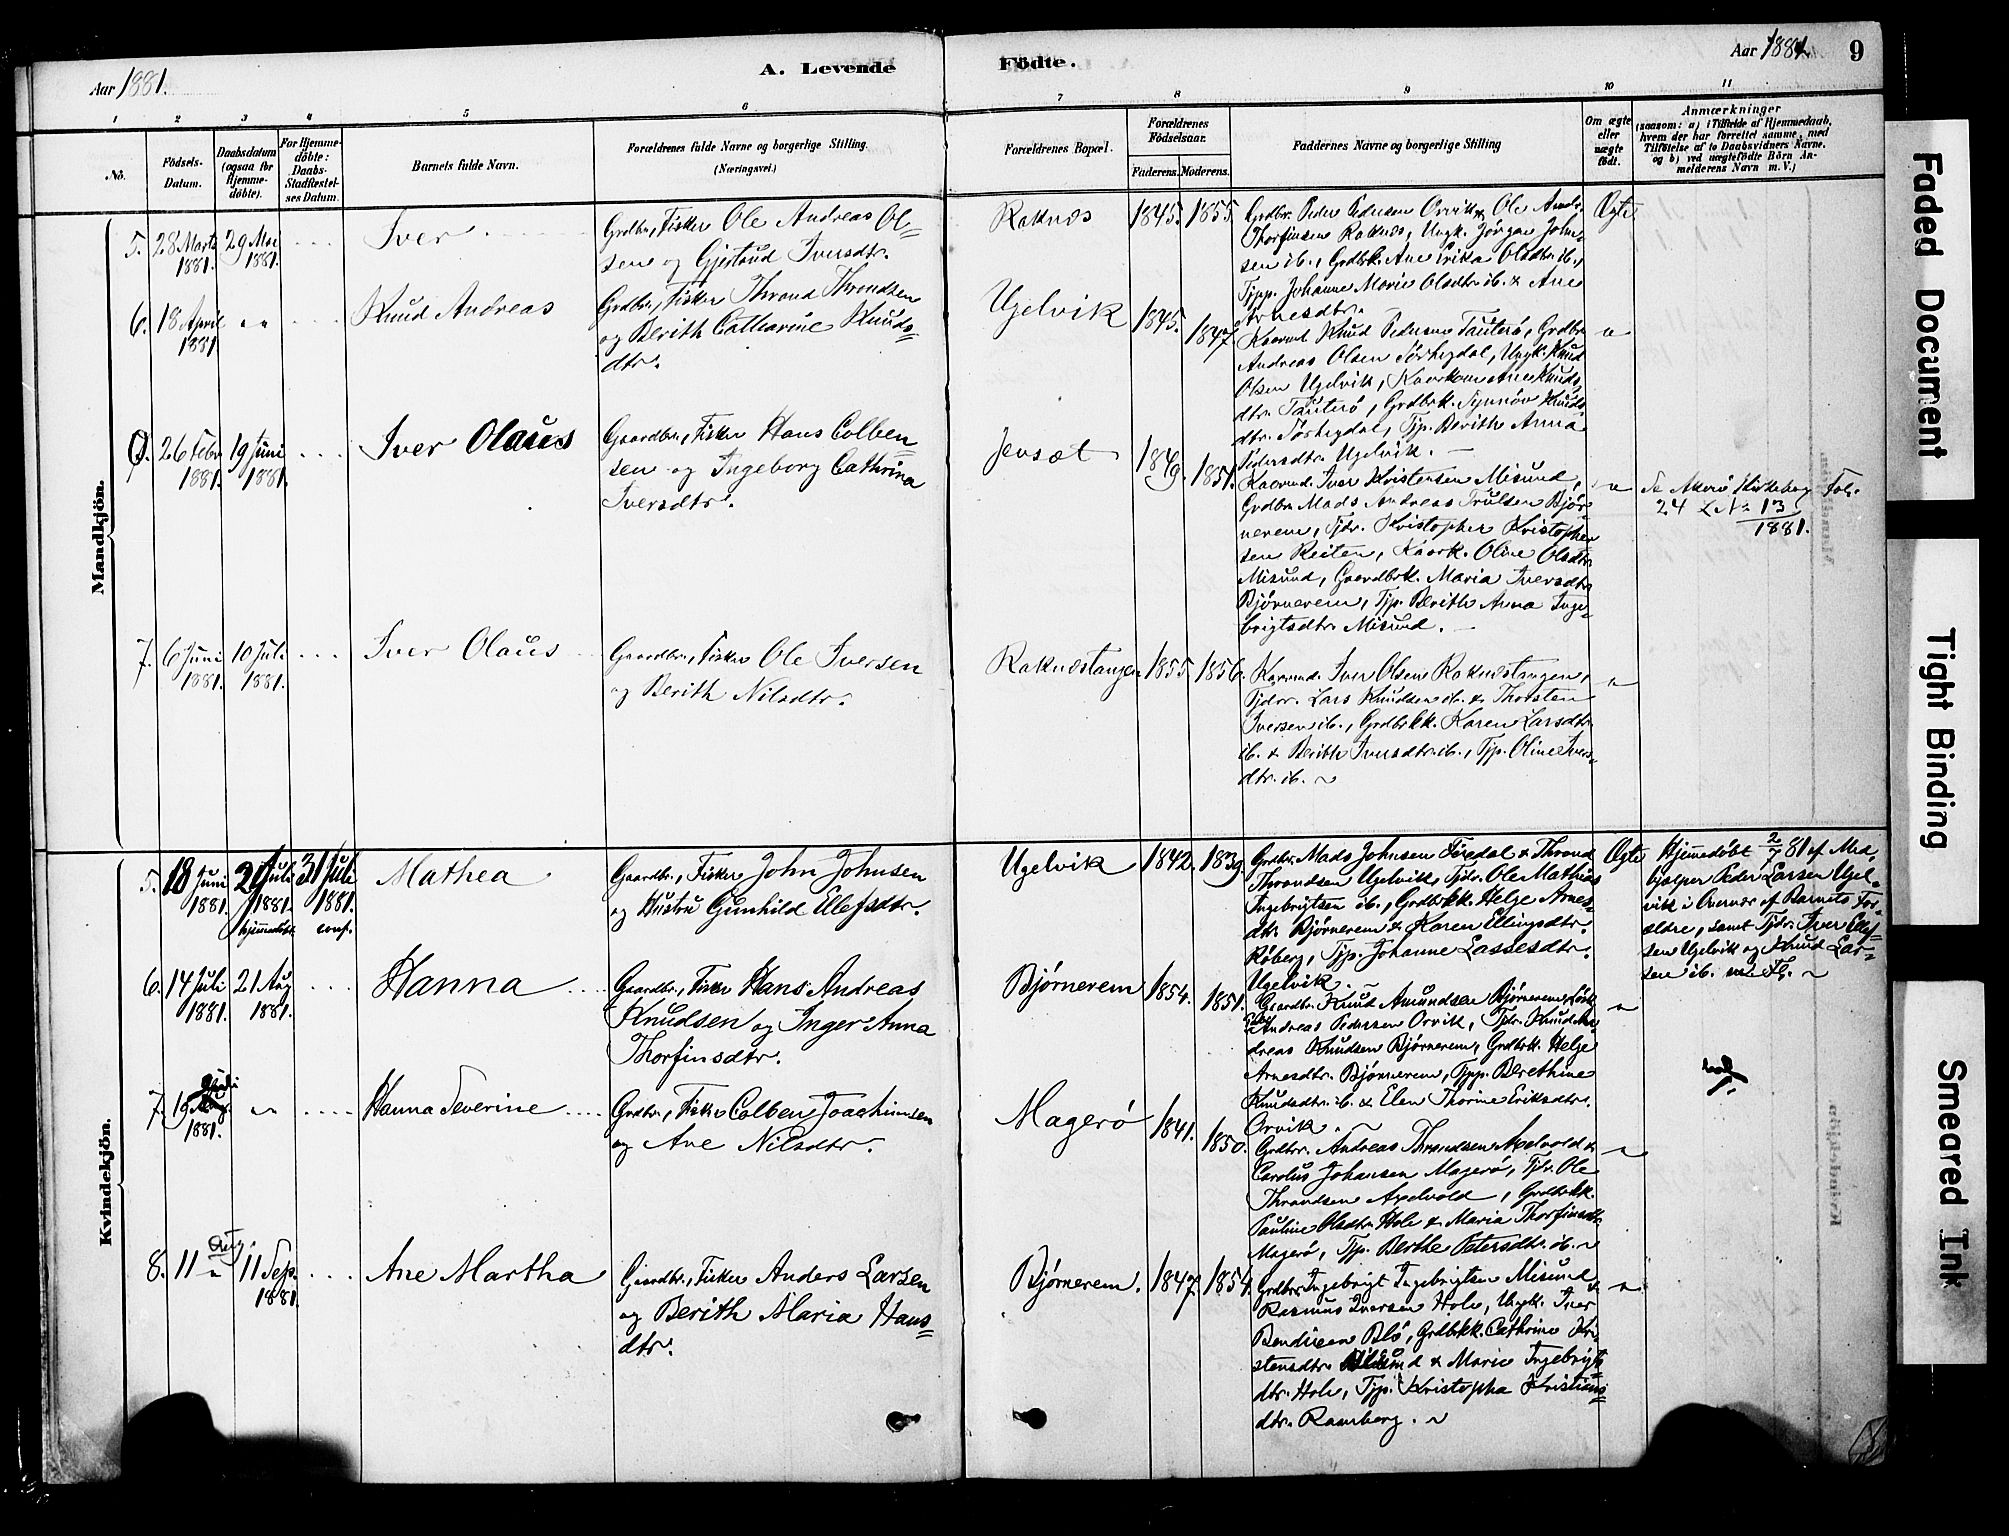 Aar 1881.
A. Levende
Födte.
Aar 1881.
9
1 2 3 4 5 6 7 8 9 10 11
No.
Födsels-
Datum.
Daabsdatum
(ogsaa for
Hjemme-
döbte).
For Hjemme-
döbte:
Daabs-
Stadfæstel-
ses Datum.
Barnets fulde Navn.
Forældrenes fulde Navne og borgerlige Stilling.
(Næringsvei.)
Forældrenes Bopæl.
Forældrenes
Födselsaar.
Faderens. Moderens.
Faddernes Navne og borgerlige Stilling
Om ægte
eller
uægte
födt.
Anmærkninger
(saasom: a) i Tilfælde af Hjemmedaab,
hvem der har forrettet samme, med
Tilföielse af to Daabsvidners Navne.
og b) ved uægtefödte Börn An-
melderens Navn m. V.)
Mandkjön.
5. 28 Marts 1881. 29 Mai 1881.
Iver
Grdbr., Fisker Ole Andreas Ol=
sen og Gjertrud Iversdtr.
Raknæs 1845. 1855.
Grdbr. Peder Pedersen Orvik & Ole Andr.
Thorfinsen Raknæs, Ungk. Jörgen John-
sen ib., Grdbrk. Ane Erika Olsdtr. ib.,
Tjpp. Johanne Marie Olsdtr. ib. & Ane
Arnesdtr.
Ægte
6. 18 April 1881 "
Knud Andreas
Grdbr., Fisker Thrond Throndsen
og Berith Catharine Knuds=
dtr.
Ugelvik 1845. 1847.
Kaarmd. Knud Pedersen Tauterö, Grdbr.
Andreas Olsen Törhegdal, Ungk. Knud
Olsen Ugelvik, Kaarkone Ane Knuds
dtr. Tauterö, Grdbrk. Synnöv Knuds
dtr. Törhegdal, Tjp. Berith Anna
Pedersdtr. Ugelvik.
"
0. 26 Febr 1881. 19 Juni 1881.
Iver Olaus
Gaardbr., Fisker Hans Colben
sen og Ingeborg Cathrina
Iversdtr.
Jensæt 1849. 1851.
Kaarmd. Iver Kristensen Misund,
Grdbr. Mads Andreas Trulsen Bjør-
nerem, Tjdr. Kristopher Kristopher
sen Reiten, Kaark. Oline Olsdtr.
Misund, Gaardbrk. Maria Iversdtr.
Bjørnerem, Tjp. Berith Anna Inge-
brigtsdtr. Misund.
"
Akerö Kirkebog Fol.
24 L № 13
1881.
7. 6 Juni 1881. 10 Juli 1881.
Iver Olaus
Gaardbr., Fisker Ole Iversen
og Berith Nilsdtr.
Raknæstangen 1855 1856.
Kaarmd. Iver Olsen Raknæstangen,
Tjdrr. Lars Knudsen ib. & Thorsten
Iversen ib., Grdbrkk. Karen Larsdtr.
ib. & Berith Iversdtr. ib., Tjp. Oline Ivers
dtr. ib.
"
Kvindekjön.
5. 18 Juni 1881. 2 Juli 1881. hjemmedøbt 31 Juli 1881. conf.
Mathea
Gaardbr., Fisker John Johnsen
og Hustru Gunhild Ellefsdtr.
Ugelvik 1842. 1839.
Grdbr. Mads Johnsen Töredal & Thrond
Throndsen Ugelvik, Tjdr. Ole Mathias
Ingebrigtsen ib., Grdbrkk. Helge Arnes-
dtr. Bjørnerem & Karen Ellingsdtr.
Röberg, Tjp. Johanne Lassesdtr.
Ugelvik.
Ægte
Hjemmedøbt 2/7 81 af Med-
hjælper Peder Larsen Ugel-
vik i Overvær af Barnets For-
ældre, samt Tjdr. Iver Ellef-
sen Ugelvik og Knud Lar-
sen ib.
6. 14 Juli 1881. 21 Aug 1881.
Hanna
Gaardbr., Fisker Hans Andreas
Knudsen og Inger Anna
Thorfinsdtr.
Bjørnerem 1854. 1851.
Gaardbr. Knud Amundsen Bjørnerem,
Andreas Pedersen Orvik, Tjdr. Knud An-
dreas Knudsen Bjørnerem, Grdbrk. Helge
Arnesdtr. Bjørnerem, Tjpp. Berethine
Knudsdtr. ib. & Elen Thorine Eriksdtr.
Orvik.
"
7. 19 Juli 1881. "
Hanna Severine
Grdbr., Fisker Colben Joachimsen
og Ane Nilsdtr.
Magerö 1841. 1850.
Grdbrr. Andreas Throndsen Axelvold &
Carolus Johansen Magerö, Tjdr. Ole
Throndsen Axelvold, Grdbrkk.
Pauline Olsdtr. Hole & Maria Thorfinsdtr.
Magerö, Tjp. Berthe Petersdtr. ib.
"
8. 11 Aug. " 11 Sep. 1881.
Ane Martha
Gaardbr., Fisker Anders Larsen
og Berith Maria Hans=
dtr.
Bjørnerem. 1847. 1854.
Grdbr. Ingebrigt Ingebrigtsen Misund &
Rasmus Iversen Hole, Ungk. Iver
Bendixen Blö, Grdbrkk. Cathrine Kri-
stensdtr. Misund & Marie Ingebrigts
dtr. Hole, Tjp. Kristopha Kristians
dtr. Ramberg.
"
Faded Document
Tight Binding
Smeared Ink